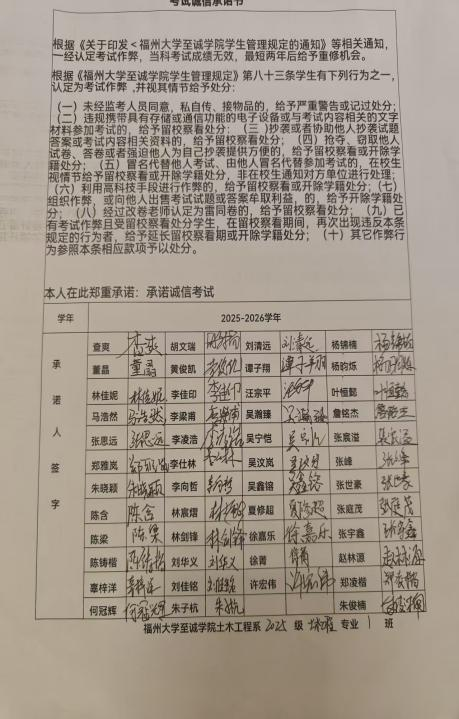 考试诚信承诺书
根据《关于印发＜福州大学至诚学院学生管理规定的通知》等相关通知，
一经认定考试作弊，当科考试成绩无效，最短两年后给予重修机会。
根据《福州大学至诚学院学生管理规定》第八十三条学生有下列行为之一，
认定为考试作弊，并视其情节给予处分：
（一）未经监考人员同意，私自传、接物品的，给予严重警告或记过处分；
（二）违规携带具有存储或通信功能的电子设备或与考试内容相关的文字
材料参加考试的，给予留校察看处分；（三）抄袭或者协助他人抄袭试题
答案或考试内容相关资料的，给予留校察看处分；（四）抢夺、窃取他人
试卷、答卷或者强迫他人为自己抄袭提供方便的，给予留校察看或开除学
籍处分；（五）冒名代替他人考试，由他人冒名代替参加考试的，在校生
视情节给予留校察看或开除学籍处分，非在校生通知对方单位进行处理；
（六）利用高科技手段进行作弊的，给予留校察看或开除学籍处分；（七）
组织作弊，或向他人出售考试试题或答案牟取利益，的，给予开除学籍处
分；（八）经过改卷老师认定为雷同卷的，给予留校察看处分；（九）已
有考试作弊且受留校察看处分学生，在留校察看期间，再次出现违反本条
规定的行为者，给予延长留校察看期或开除学籍处分；（十）其它作弊行
为参照本条相应款项予以处分。
本人在此郑重承诺：承诺诚信考试
学年 2025-2026学年
承诺人签字
查爽 查爽 胡文瑞 胡文瑞 刘清远 刘清远 杨锦楠 杨锦楠
董晶 董晶 黄俊凯 谭子翔 杨昀烁
林佳妮 林佳妮 李佳印 李佳印 汪宗平 叶恒懿 叶恒懿
马浩然 马浩然 李梁甫 吴瀚臻 詹铭杰
张思远 张思远 李凌浩 吴宁恺 张宸溢
郑雅岚 李仕林 吴汶岚 张峰 张峰
朱晓颖 李向哲 吴鑫镕 张世豪
陈含 陈含 林宸熠 夏修超 夏修超 张庭茂 张庭茂
陈梁 陈梁 林剑锋 林剑锋 徐嘉乐 徐嘉乐 张宇鑫 张宇鑫
陈铸楷 刘华义 刘华义 徐菁 赵林源 赵林源
辜梓洋 刘佳铭 许宏伟 郑凌楷
何冠辉 朱子杭 朱俊楠
福州大学至诚学院土木工程系 2025 级 专业 1 班